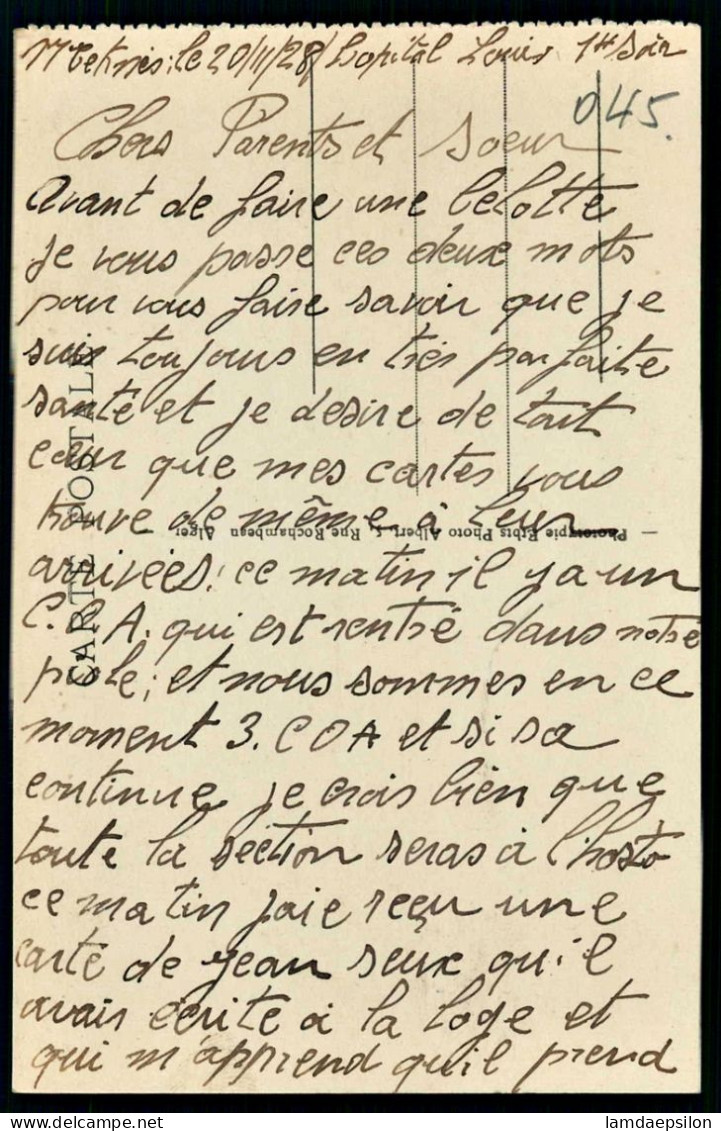 Meknès: le 20/11/28/ hopital Louis 1er Soir
045.
Chers Parents et Soeur
Avant de faire une belotte
je vous passe ces deux mots
pour vous faire savoir que je
suis toujours en très parfaite
santé et je desire de tout
cœur que mes cartes vous
trouve de même à leur
arrivées! ce matin il y a un
C.O.A. qui est rentré dans notre
piole; et nous sommes en ce
moment 3. COA et si sa
continue je crois bien que
toute la section seras à l'hosto
ce matin jaie reçu une
carte de jean Seux qu'il
avais écrite à la loge et
qui m'apprend qu'il prend
CARTE POSTALE
— Phototypie Etabts Photo Albert, 5, Rue Rochambeau Alger
lamdaepsilon